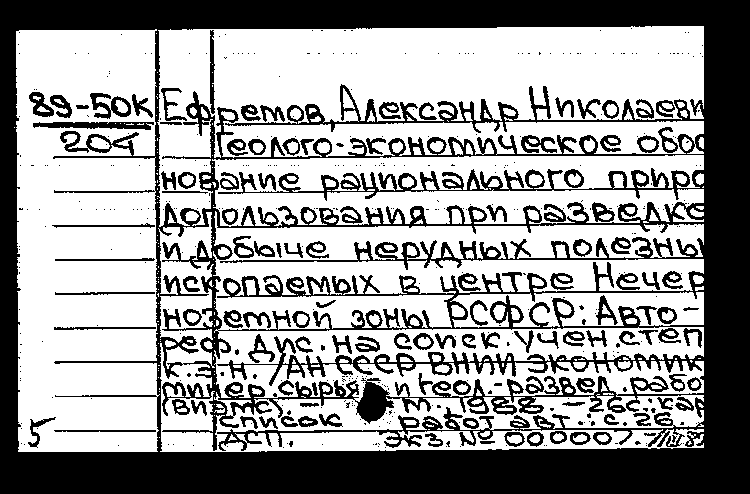 89-50К Ефремов, Александр Николаеви
204 Геолого-экономическое обос
нование рационального приро
допользования при разведке
и добыче нерудных полезны
ископаемых в центре Нечер
ноземной зоны РСФСР: Авто-
реф. дис. на соиск. учен. степ
к.э.н. /АН СССР, ВНИИ экономик
минер. сырья и геол.-развед. работ
(ВИЭМС). — М., 1988. — 26с.: кар
Список работ авт.: с. 26.
5 ДСП. Экз. № 000007.